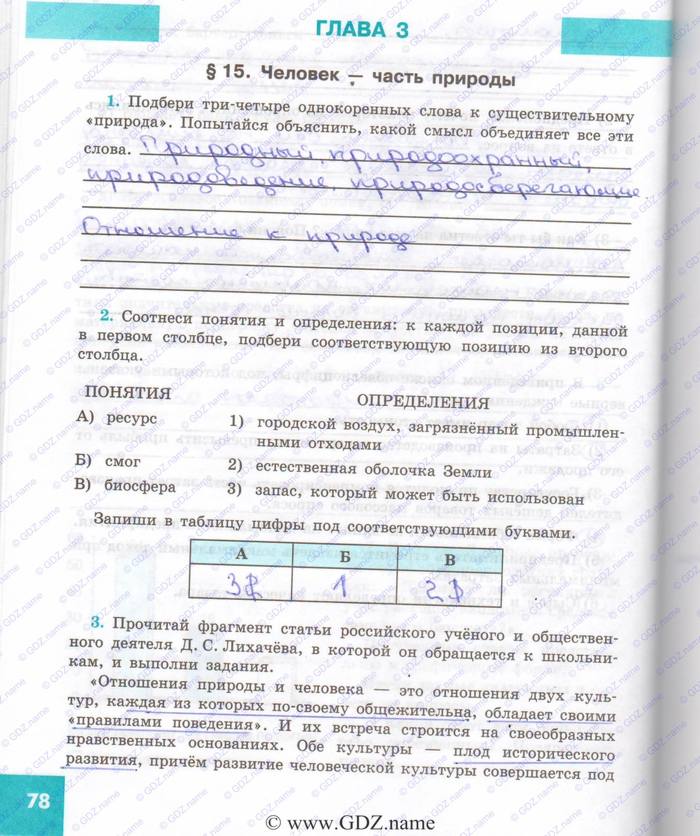 ГЛАВА 3
§ 15. Человек — часть природы
1. Подбери три-четыре однокоренных слова к существительному
«природа». Попытайся объяснить, какой смысл объединяет все эти
слова. Природный, природоохранный,
природоведение, природосберегающие
Отношение к природе
2. Соотнеси понятия и определения: к каждой позиции, данной
в первом столбце, подбери соответствующую позицию из второго
столбца.
ПОНЯТИЯ ОПРЕДЕЛЕНИЯ
А) ресурс 1) городской воздух, загрязнённый промышлен-
ными отходами
Б) смог 2) естественная оболочка Земли
В) биосфера 3) запас, который может быть использован
Запиши в таблицу цифры под соответствующими буквами.
А Б В
3 1 2
3. Прочитай фрагмент статьи российского учёного и обществен-
ного деятеля Д. С. Лихачёва, в которой он обращается к школьни-
кам, и выполни задания.
«Отношения природы и человека — это отношения двух куль-
тур, каждая из которых по-своему общежительна, обладает своими
«правилами поведения». И их встреча строится на своеобразных
нравственных основаниях. Обе культуры — плод исторического
развития, причём развитие человеческой культуры совершается под
78
© www.GDZ.name